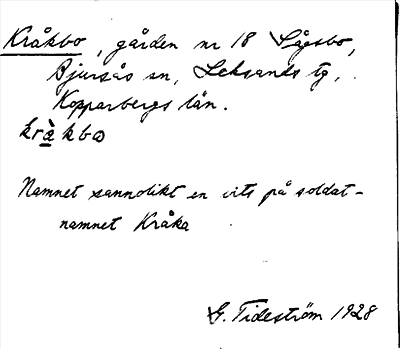 Kråkbo, gården nr 18 Sågsbo,
Bjursås sn, Leksands tg,
Kopparbergs län.
kràkbo
Namnet sannolikt en vits på soldat-
namnet Kråka
G. Tideström 1928